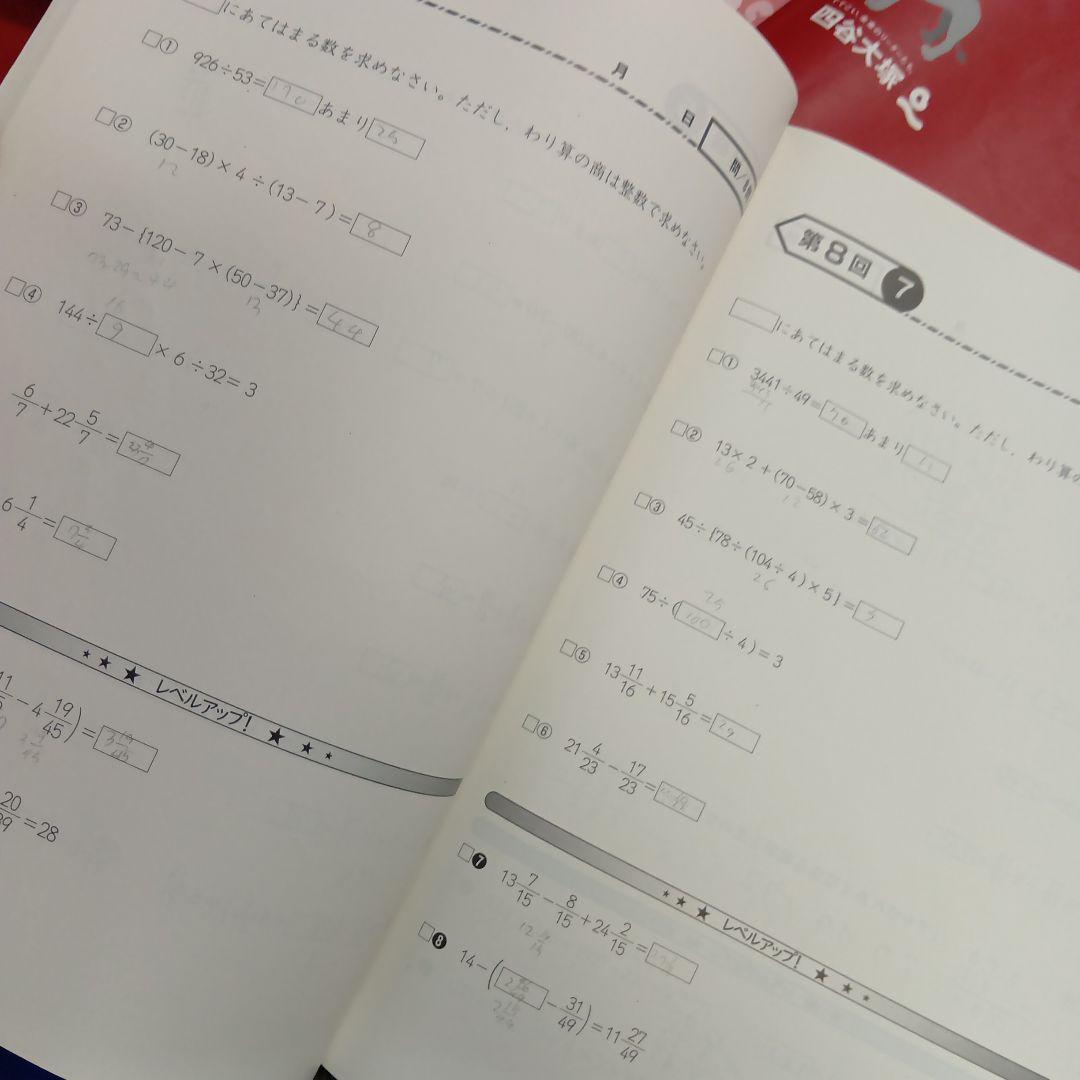 四谷大塚
月
日
にあてはまる数を求めなさい。ただし，わり算の商は整数で求めなさい。
□① 926÷53= あまり
□② (30−18)×4÷(13−7)=8
12
□③ 73−{120−7×(50−37)}=44
13
□④ 144÷9×6÷32=3
6/7+22 5/7=
6 1/4=
★★★ レベルアップ! ★★★
−4 19/45)=
20/39=28
第8回 7
にあてはまる数を求めなさい。ただし，わり算の
□① 3441÷49= あまり
□② 13×2+(70−58)×3=
26 12
□③ 45÷{78÷(104÷4)×5}=3
26
25
□④ 75÷(100÷4)=3
□⑤ 13 11/16+15 5/16=29
□⑥ 21 4/23−17/23=
★★★ レベルアップ! ★★★
□❼ 13 7/15−8/15+24 2/15=
□❽ 14−( −31/49)=11 27/49